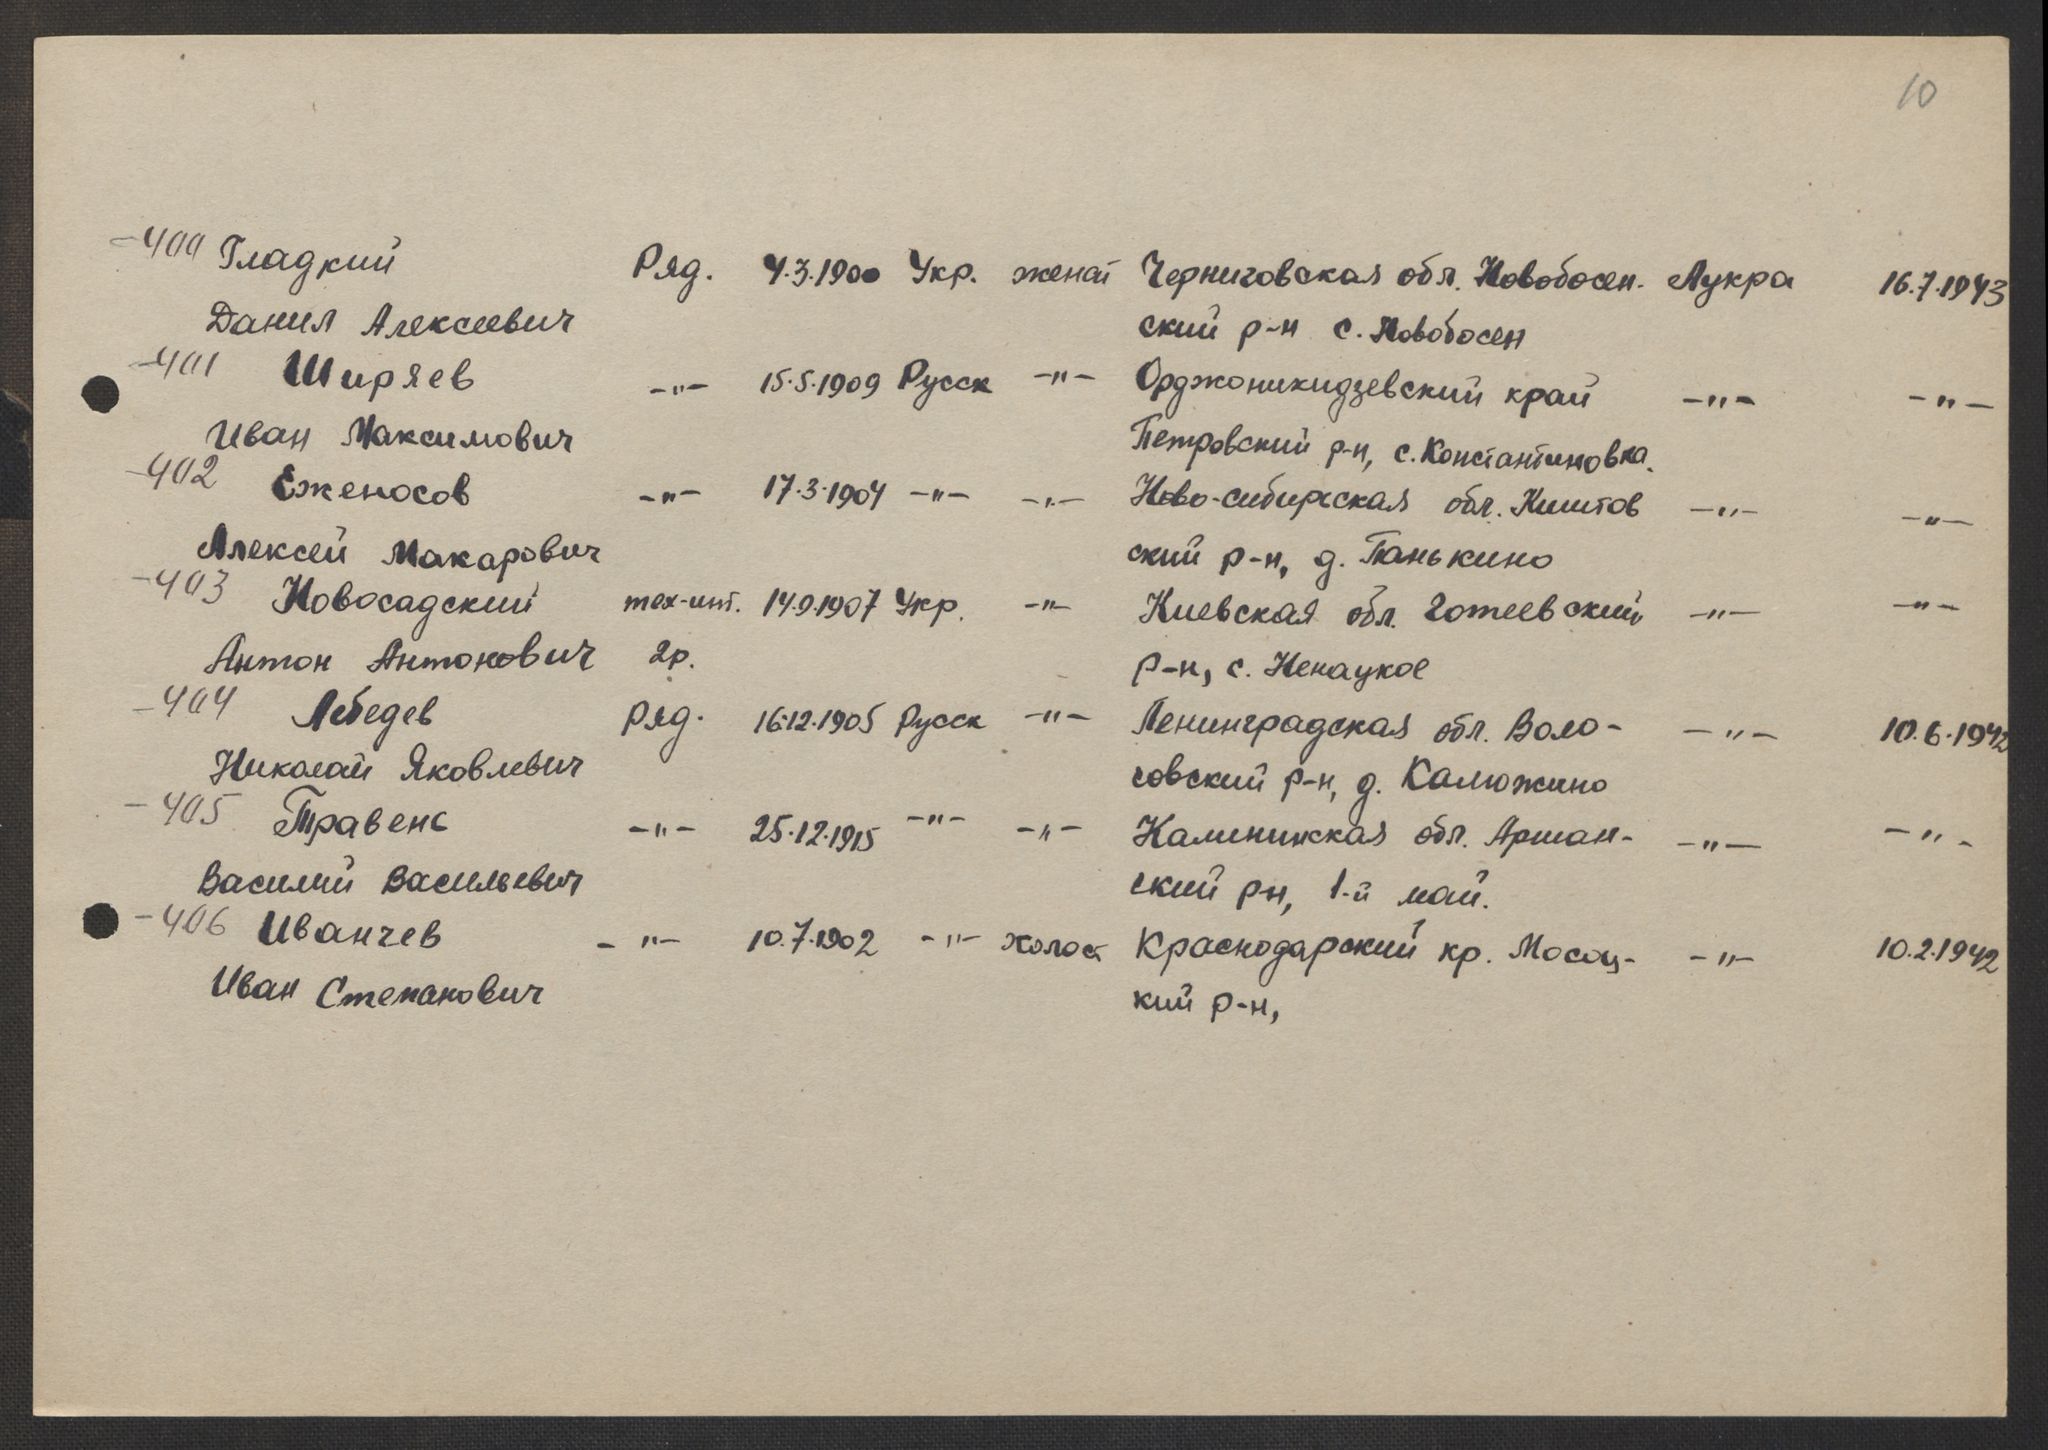 10
-400 Гладкий Ряд. 4.3.1900 Укр. женат Черниговская обл. Новобосен- Лукра 16.7.1943
Данил Алексеевич ский р-н с. Новобосен
-401 Ширяев -"- 15.5.1909 Русск -"- Орджоникидзевский край -"- -"-
Иван Максимович Петровский р-н, с. Константиновка.
-402 Еженосов -"- 17.3.1904 -"- -"- Ново-сибирская обл. Киштов -"- -"-
Алексей Макарович ский р-н, д. Панькино
-403 Новосадский тех-инт. 14.9.1907 Укр. -"- Киевская обл. Готеевский -"- -"-
Антон Антонович 2р. р-н, с. Ненаукое
-404 Лебедев Ряд. 16.12.1905 Русск -"- Ленинградская обл. Воло- -"- 10.6.1942
Николай Яковлевич совский р-н, д. Калюжино
-405 Травенс -"- 25.12.1915 -"- -"- Калининская обл. Аршан- -"- -"-
Василий Васильевич ский рн, 1-й май.
-406 Иванчев -"- 10.7.1902 -"- холост Краснодарский кр. Мосоц- -"- 10.2.1942
Иван Степанович кий р-н,